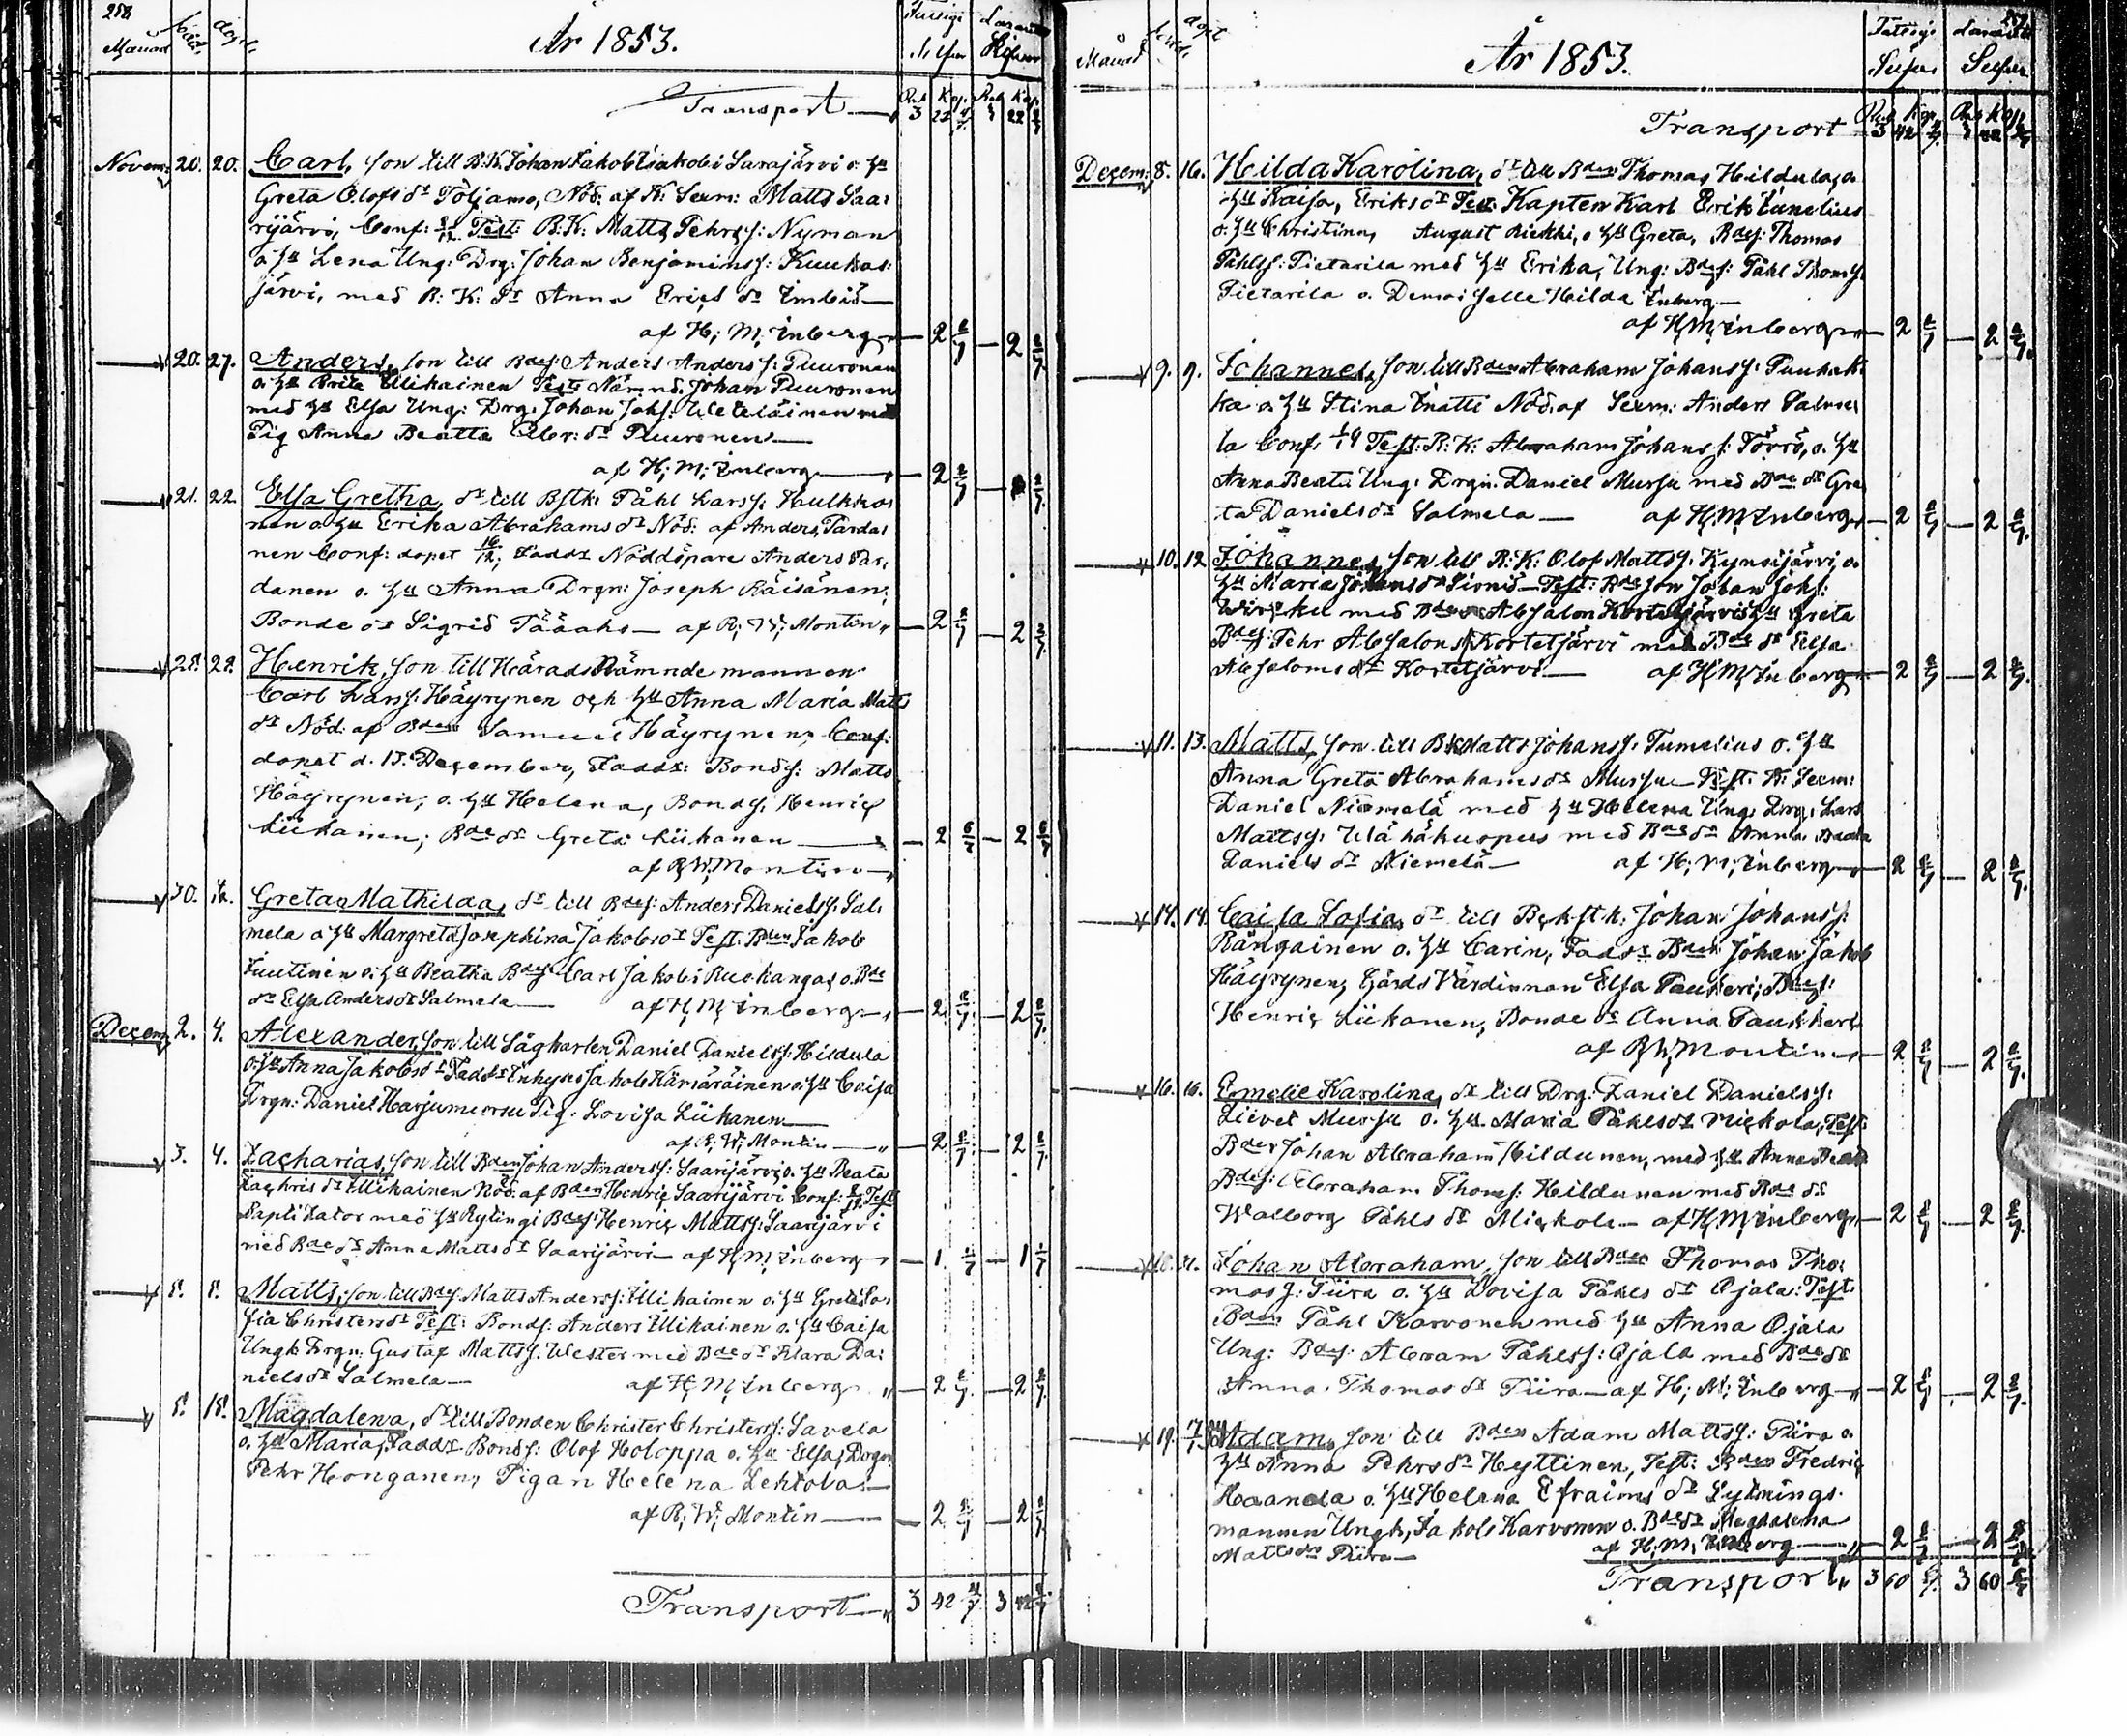 258
Månad född. döpt. År 1853. Fattige Lasarett
Transport 3 22 3 22
Novem: 20. 20. Carl, son till B.K. Johan Jakob Isakoi Sarajärvi o. Hu
Greta Olofs dr Töljamo, Nöd: af K: Sexm: Matts Saa:
rijärvi, Conf: Test: B:K: Matts Pehrss: Nyman
o Hu Lena Ung: Drg: Johan Benjaminss: Kuukas:
järvi, med B: K: dr Anna Erics dr
af H: M: Inberg 2 2
20. 27. Anders, son till Bdes: Anders Anderss: Puuronen
o. Hu Brita Ullikainen Test: Nämnd. Johan Puuronen
med Hu Elsa Ung: Drg: Johan Johs: Weteläinen med
Pig Anna Beatta dr Puuronen
af H: M: Inberg 2
21. 22. Elsa Gretha, dr till Bstk: Påhl Larss: Haulkko
nen o Hu Erika Abrahams dr Nöd: af Anders Parda
nen Conf: döpet 16/12, Faddr Nöddöpare Anders Par,
danen o. Hu Anna Drgn: Joseph Räisänen,
Bonde dr Sigrid af R: W: Montin 2 2
28. 28. Henrik, son till Härads Nämndemannen
Carl Larss: Häyrynen och Hu Anna Maria Matts
dr Nöd: af Bden Samuel Häyrynen, Conf:
döpet d. 15. December, Faddr: Bonds: Matts
Häyrynen, o. Hu Helena, Bonds: Henric
Liikanen, Bde dr Greta Liikanen 2 2
af R W: Montin
30. Greta Mathilda, dr till Bdes: Anders Danielss: Sal:
mela o Hu Margreta Josephina Jakobs dr Test: Bden Jakob
Juutinen o. Hu Beatha Bdes: Carl Jakobs Ruokangas o. Bde
dr Elsa Anders dr Salmela af H: M: Inberg 2 2
Decem: 2. 4. Alexander, son till Sågkarlen Daniel Danielss: Hildula
o. Hu Anna Jakobs dr Faddr Inhyses Jakob o. Hu Caisa
Drgn: Daniel Harjumursu Pig. Lovisa Liikanen
af R: W: Montin 2 2
3. 4. Zacharias, son till Bden Johan Anderss: Saarijärvi o. Hu Beata
Zachris dr Ullikainen Nöd: af Bden Henric Saarijärvi Conf: Test
Baptisator med Hu Rytingi Bdes: Henric Mattss: Saarijärvi
med Bde dr Anna Matts dr Saarijärvi af H: M: Inberg 1 1
8. 8. Matts, son till Bdes: Matts Anderss: Ullikainen o. Hu Greta So:
fia Christers dr Test: Bonds: Anders Ullikainen o. Hu Caisa
Ungk Drgn: Gustaf Mattss: Wester med Bde dr Klara Da:
niels dr Salmela af H: M: Inberg 2 2
8. 18. Magdalena, dr till Bonden Christer Christerss: Savela
o. Hu Maria, Faddr Bonds: Olof Holoppa o. Hu Elsa, Drgn
Pehr Honganen, Pigan Helena Lehtola
af R: W: Montin 2 2
Transport 3 42 3 42
Månad född. döpt År 1853. Fattige Lasarett
Transport 3 42 3 42
Decem: 8. 16. Hilda Karolina, dr till Bden Thomas Hildula, o
Hu Kaisa, Eriks dr Test: Kapten Karl Erik Zanelius
o. Hu Christina, August Riekki, o Hu Greta, Bdes: Thomas
Påhlss: Pietarila med Hu Erika, Ung: Bdes: Påhl Thomss:
Pietarila o. Demoiselle Hilda Inberg
af H: M: Inberg 2 2
9. 9. Johannes, son till Bden Abraham Johanss: Puuhak
ka o. Hu Stina Inatti Nöd: af Sexm: Anders Salme:
la Conf: Test: B: K: Abraham Johans s: Törrö, o. Hu
Anna Beata Ung: Drgn: Daniel Mursu med Bde dr Gre
ta Daniels dr Salmela af H: M: Inberg 2 2
10. 12. Johannes, son till B: K: Olof Mattss: Kynsijärvi, o.
Hu Maria Johans dr Test: Bde son Johan Johs:
med Bden Absalon Kortetjärvis Hu Greta
Bdes: Pehr Absalons Kortetjärvi med Bde dr Elsa
Absaloms dr Kortetjärvi af H: M: Inberg 2 2
11. 13. Matts, son till BK Matts Johanss: Tumelius o. Hu
Anna Greta Abrahams dr Mursu Test: K: Sexm:
Daniel Niemelä med Hu Helena Ung: Drg: Lars
Mattss: med Bde dr Anna Beata
Daniels dr Niemelä af H: M: Inberg 2 2
14. 14. Caisa Sofia, dr till Johan Johanss:
Rängainen o. Hu Carin, Faddr Bden Johan Jakob
Häyrynen, Gårds Värdinnan Elsa Paukeri, Bdes:
Henric Liikanen, Bonde dr Anna Paukkeri
af R W: Montin 2 2
16. 16. Emelie Karolina, dr till Drg: Daniel Danielss:
Mursu o. Hu Maria Påhls dr Mickola, Test:
Bden Johan Abraham Hildunen, med Hu Anna Beata
Bdes: Abraham Thomss: Hildunen med Bde dr
Walborg Påhls dr Mickola af H: M: Inberg 2 2
Johan Abraham, son till Bden Thomas Tho:
mass: Piira o. Hu Lovisa Påhls dr Ojala: Test:
Bden Påhl Karvonen med Hu Anna Ojala
Ung: Bdes: Abram Påhlss: Ojala med Bde dr
Anna Thomas dr Piira af H: M: Inberg 2 2
19. Adam, son till Bden Adam Mattss: Piira o.
Hu Anna Pehrs dr Heyttinen, Test: Bden Fredric
Haanela o. Hu Helena Efraims dr Lytnings
mannen Ungk, Jakob Karvonen o. Bde dr Magdalena
Matts dr Piira af H: M: Inberg 2 2
Transport 3 60 3 60